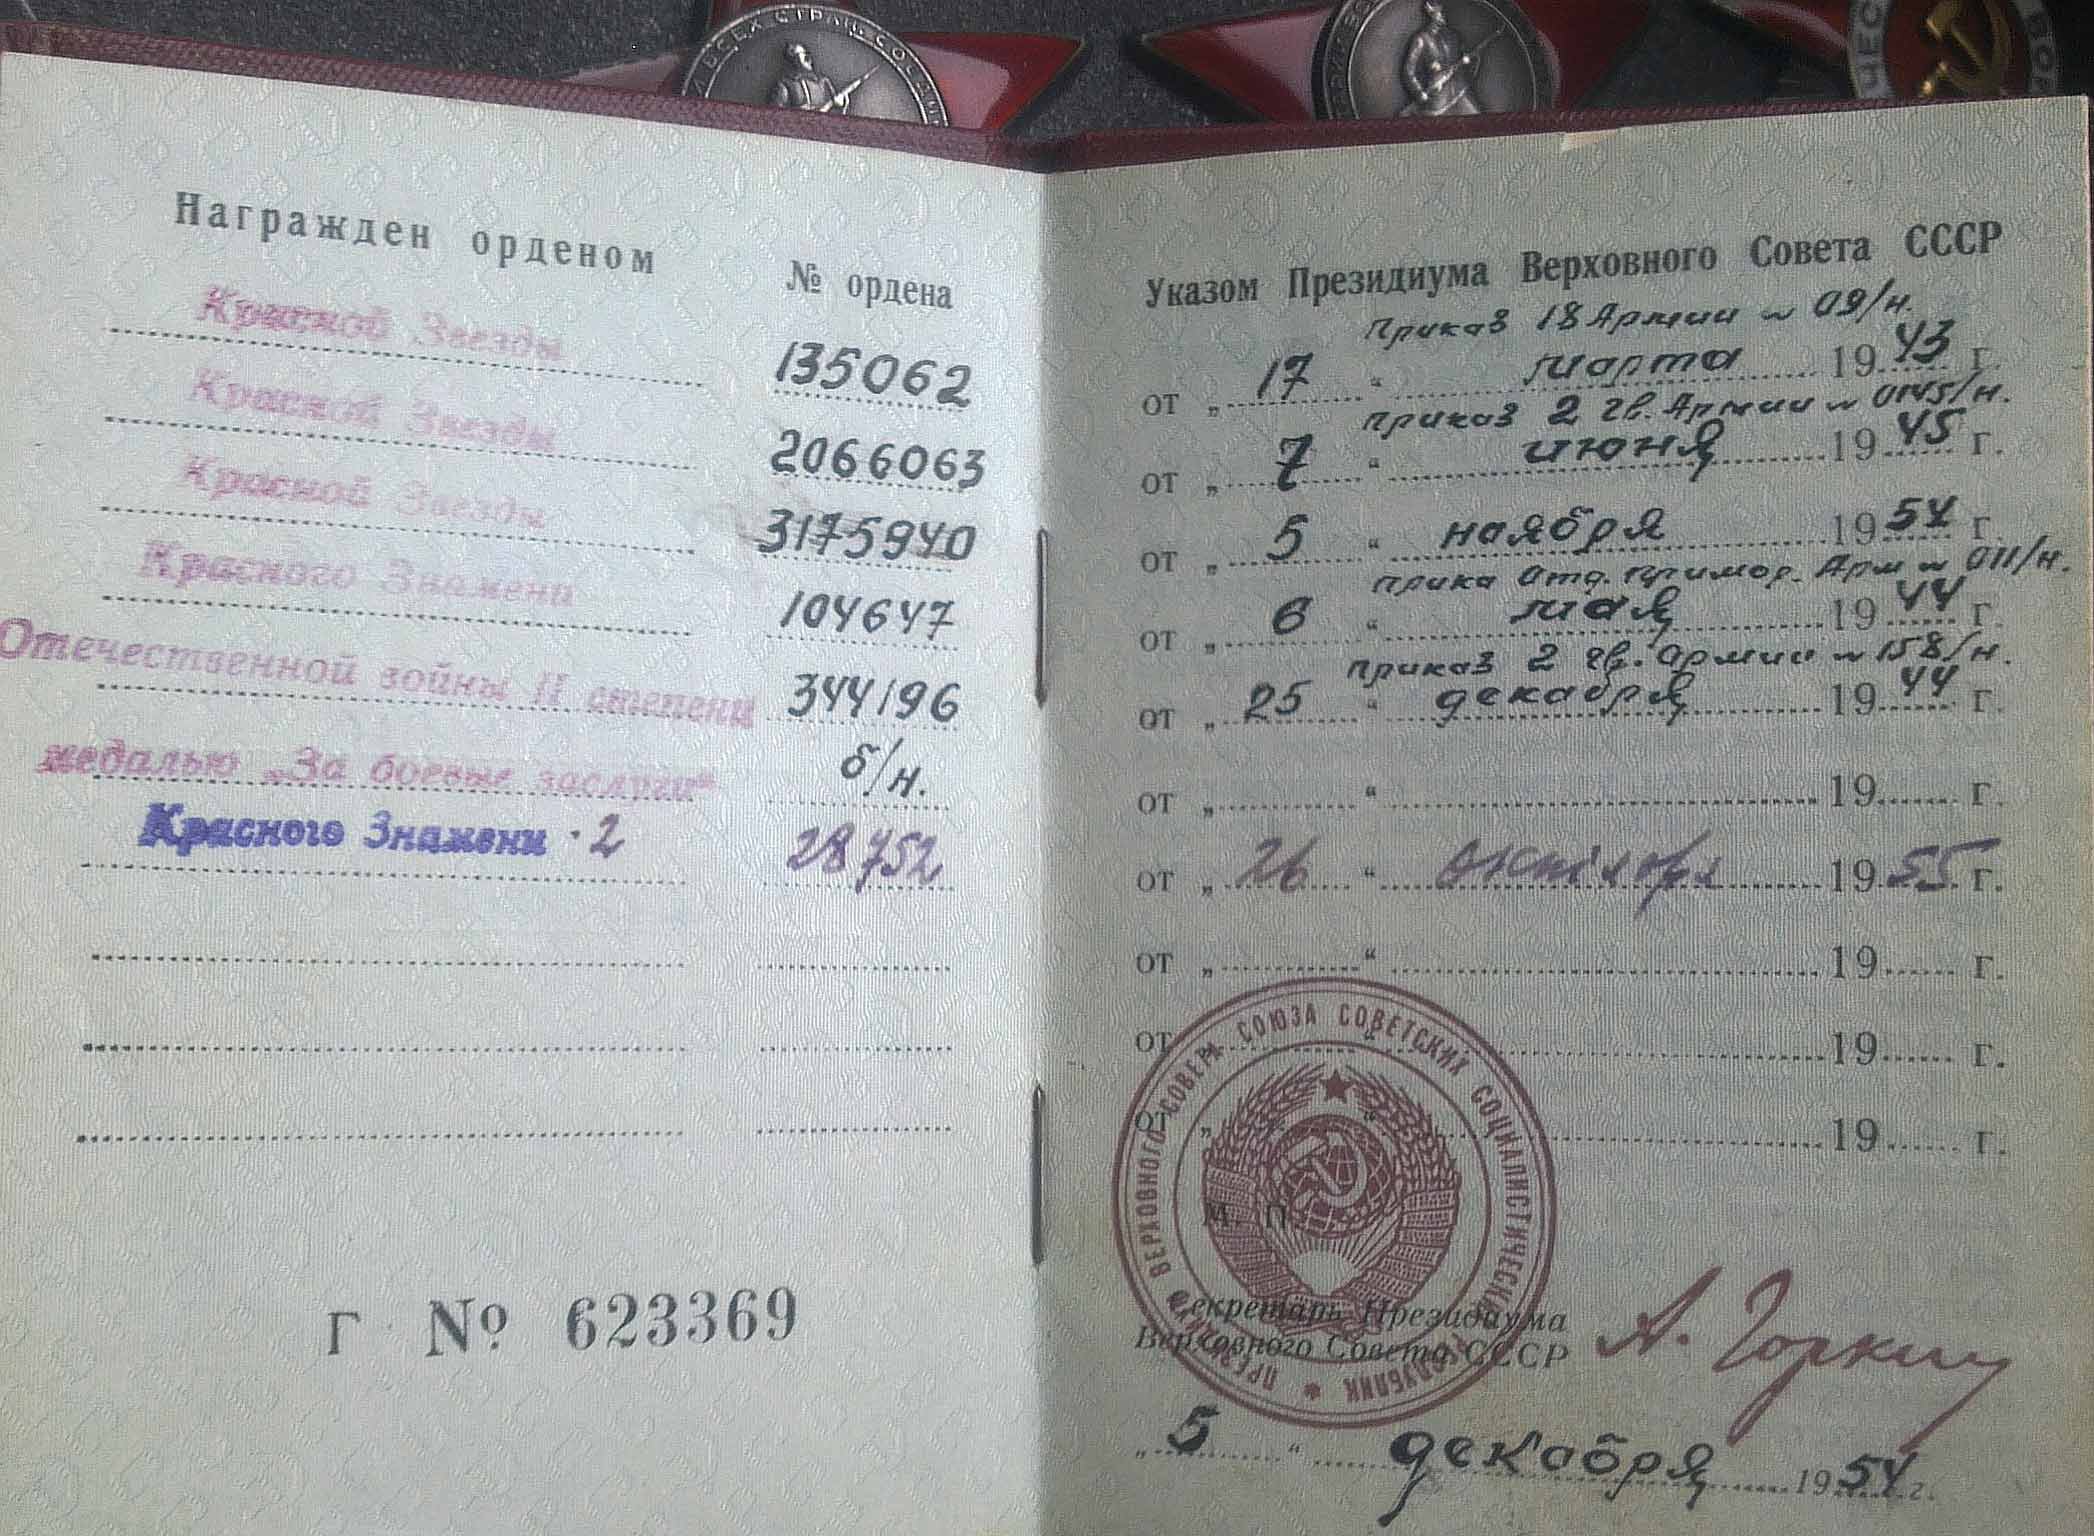 ВСЕХ СТРАН, СОЕ
Награжден орденом
№ ордена
Красной Звезды 135062
Красной Звезды 2066063
Красной Звезды 3175940
Красного Знамени 104647
Отечественной войны II степени 344196
медалью „За боевые заслуги“ б/н.
Красного Знамени · 2 28752
Г № 623369
Указом Президиума Верховного Совета СССР
приказ 18 Армии ~ 09/н.
от „ 17 “ марта 19 43 г.
приказ 2 гв. Армии ~ 0145/н.
от „ 7 “ июня 19 45 г.
от „ 5 “ наября 19 54 г.
прика Отд. примор. Арм ~ 011/н.
от „ 6 “ мая 19 44 г.
приказ 2 гв. армии ~ 158/н.
от „ 25 “ декабря 19 44 г.
от „ “ 19 г.
от „ 26 “ октября 19 55 г.
от „ “ 19 г.
от „ “ 19 г.
от „ “ 19 г.
ПРЕЗИДИУМ ВЕРХОВНОГО СОВЕТА СОЮЗА СОВЕТСКИХ СОЦИАЛИСТИЧЕСКИХ РЕСПУБЛИК *
М. П.
Секретарь Президиума
Верховного Совета СССР
А. Горкин
„ 5 “ декабря 19 54 г.